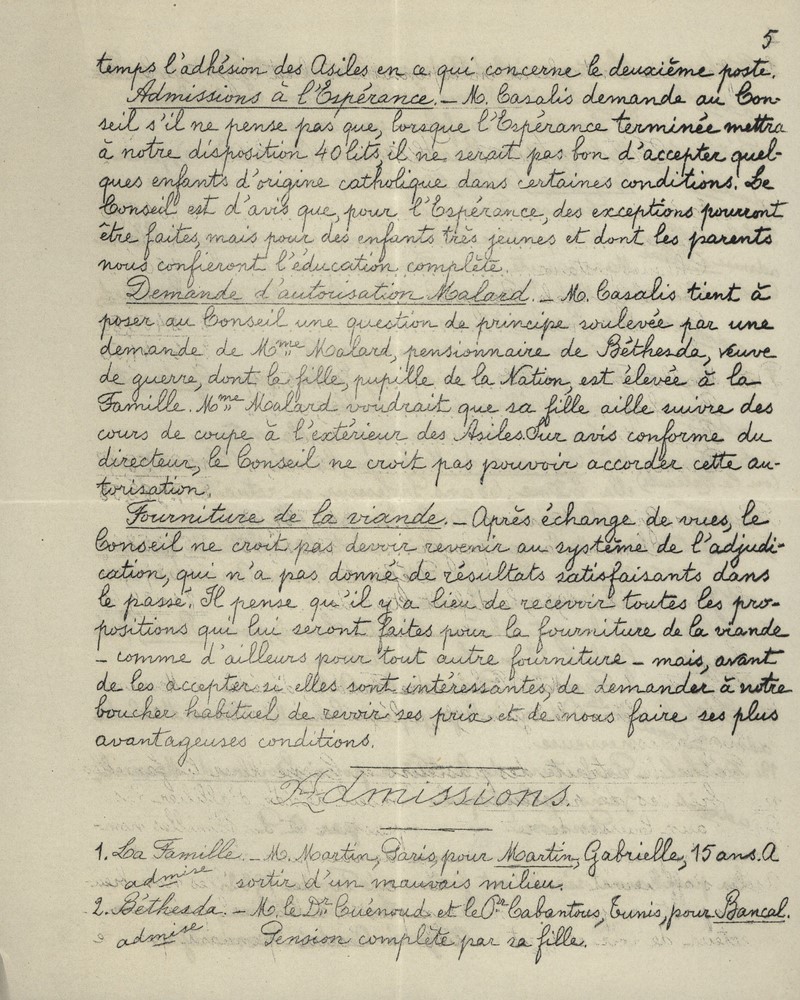 5
temps l'adhésion des Asiles en ce qui concerne le deuxième poste.
Admissions à l'Espérance. — M. Casalis demande au Con-
seil s'il ne pense pas que, lorsque l'Espérance terminée mettra
à notre disposition 40 lits, il ne serait pas bon d'accepter quel-
ques enfants d'origine catholique dans certaines conditions. Le
Conseil est d'avis que, pour l'Espérance, des exceptions pourront
être faites, mais pour des enfants très jeunes et dont les parents
nous confieront l'éducation complète.
Demande d'autorisation Malard. — M. Casalis tient à
poser au Conseil une question de principe soulevée par une
demande de Mme Malard, pensionnaire de Béthesda, veuve
de guerre, dont la fille, pupille de la Nation, est élevée à la
Famille. Mme Malard voudrait que sa fille aille suivre des
cours de coupe à l'extérieur des Asiles. Sur avis conforme du
directeur, le Conseil ne croit pas pouvoir accorder cette au-
torisation.
Fourniture de la viande. — Après échange de vues, le
Conseil ne croit pas devoir revenir au système de l'adjudi-
cation, qui n'a pas donné de résultats satisfaisants dans
le passé. Il pense qu'il y a lieu de recevoir toutes les pro-
positions qui lui seront faites pour la fourniture de la viande
— comme d'ailleurs pour tout autre fourniture — mais, avant
de les accepter si elles sont intéressantes, de demander à notre
boucher habituel de revoir ses prix et de nous faire ses plus
avantageuses conditions.
Admissions.
1. La Famille. — M. Martin, Paris, pour Martin, Gabrielle, 15 ans. A
admise sortir d'un mauvais milieu.
2. Béthesda. — M. le Dr Cuénoud et le Pr Cabantous, Tunis, pour Bancal.
admise Pension complète par sa fille.